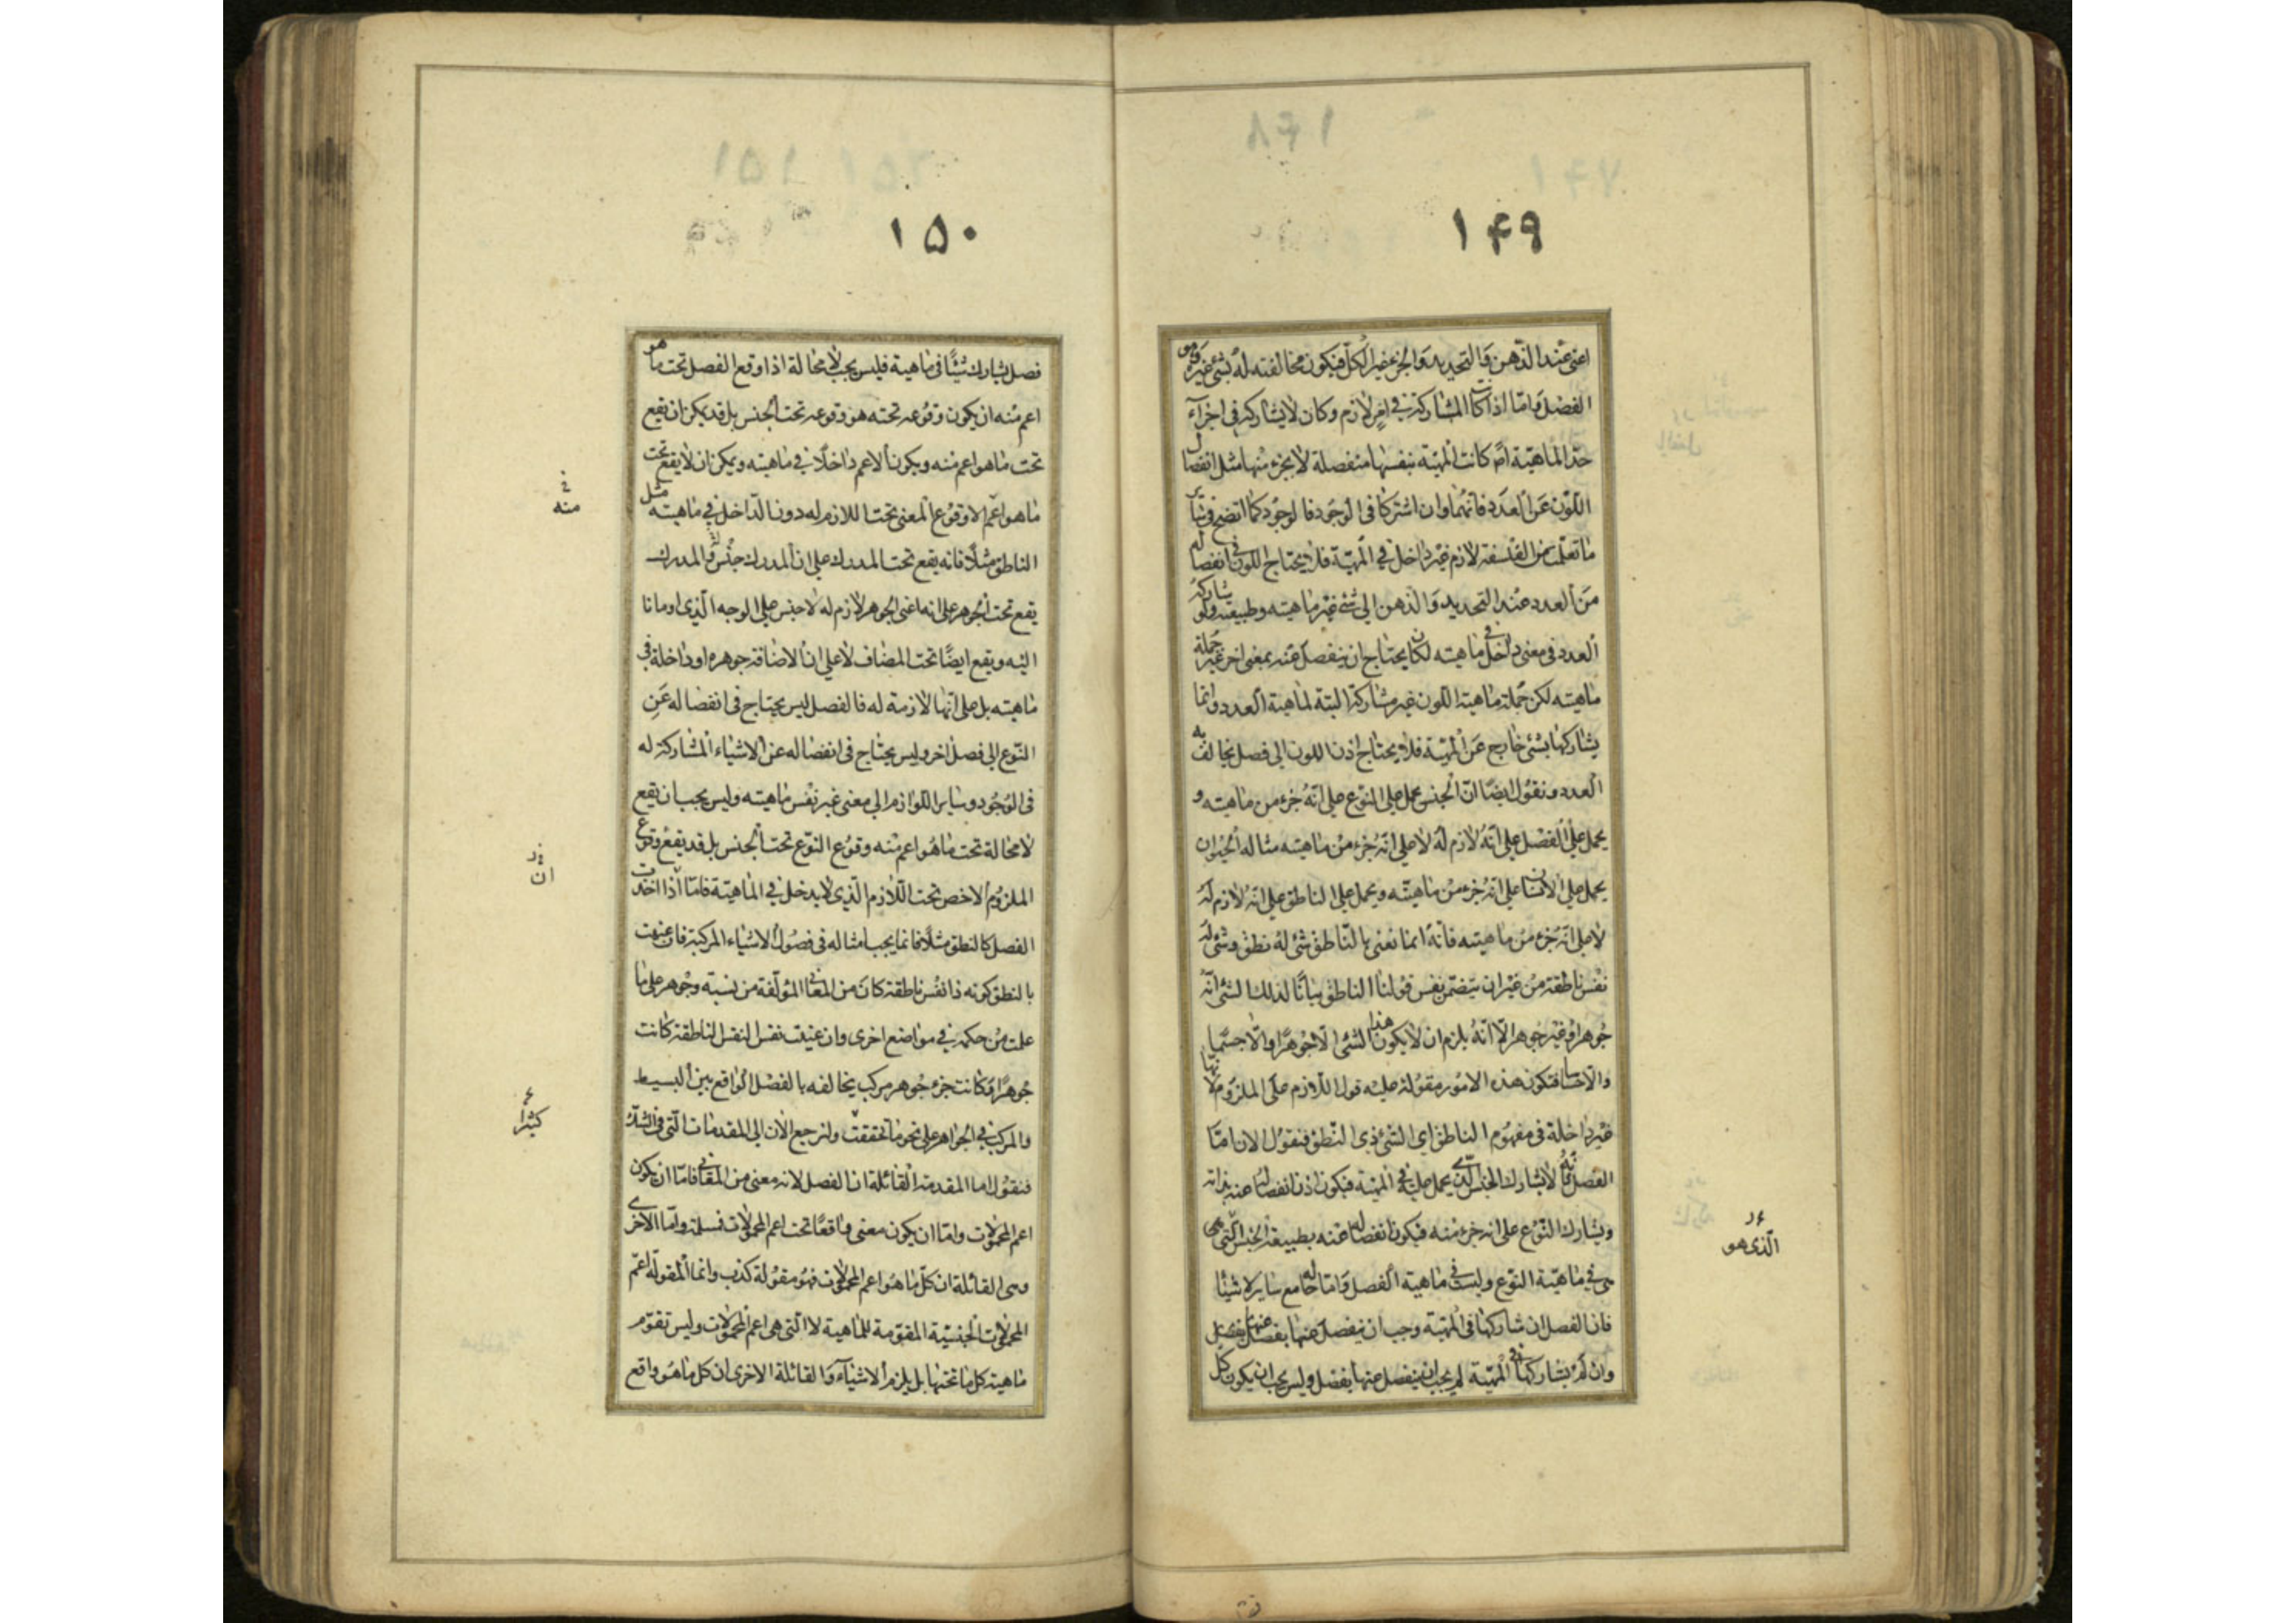 ١٤٩
اعنى عند الذهن والتحديد والجزء غير الكل فيكون مخالفته له بشئ غيره وهو
الفصل واما اذا كانت المشاركة فى امر لازم وكان لا يشاركه فى اجزآء
حد الماهية ثم كانت المهية بنفسها منفصلة لا بجزء منها مثل انفصال
اللون عن العدد فانهما وان اشتركا فى الوجود فالوجود كما اتضح فى سائر
ما تعلمت من الفلسفة لازم غير داخل فى المهية فلا يحتاج اللون فى انفصاله
من العدد عند التحديد والذهن الى شئ غير ماهيته وطبيعته ولو شاركه
العدد فى معنى داخل فى ماهيته لكان يحتاج ان ينفصل عنه بمعنى اخر غير جملة
ماهيته لكن جملة ماهية اللون غير مشاركة البتة لماهية العدد وانما
يشاركها بشئ خارج عن المهية فلا يحتاج اذن اللون الى فصل يخالف به
العدد ونقول ايضا ان الجنس يحمل على النوع على انه جزء من ماهيته و
يحمل على الفصل على انه لازم له لا على انه جزء من ماهيته مثاله الحيوان
يحمل على الانسان على انه جزء من ماهيته ويحمل على الناطق على انه لازم له
لا على انه جزء من ماهيته فانه انما نعنى بالناطق شئ له نطق وشئ له
نفس ناطقة من غير ان يتضمن نفس قولنا الناطق بيانا لذلك الشئ انه
جوهر او غير جوهر الا انه يلزم ان لا يكون هذا الشئ الا جوهرا والا جسما
والا حساسا فتكون هذه الامور مقولة عليه قول اللازم على الملزوم لانها
غير داخلة فى مفهوم الناطق اى الشئ ذى النطق فنقول الان اما
الفصل فانه لا يشارك الجنس الذى يحمل عليه فى المهية فيكون اذن انفصاله عنه بذاته
ويشارك النوع على انه جزء منه فيكون انفصاله عنه بطبيعة الجنس التى هى
هى فى ماهية النوع وليست فى ماهية الفصل واما حاله مع ساير الاشيئا
فان الفصل ان شاركها فى المهية وجب ان ينفصل عنها بفصل
وان لم يشاركها فى المهية لم يجب ان ينفصل عنها بفصل وليس يجب ان يكون كل
الذى هو
١٥٠
فصل يشارك شيئا فى ماهية فليس يجب لا محالة اذا وقع الفصل تحت ما هو
اعم منه ان يكون وقوعه تحته هو وقوعه تحت الجنس بل قد يمكن ان يقع
تحت ما هو اعم منه ويكون الاعم داخلا فى ماهيته ويمكن ان لا يقع تحت
ما هو اعم الا وقوع المعنى تحت اللازم له دون الداخل فى ماهيته مثل
الناطق مثلا فانه يقع تحت المدرك على ان المدرك جنس له والمدرك
يقع تحت الجوهر على انه اعنى الجوهر لازم له لا جنس على الوجه الذى اومانا
اليه ويقع ايضا تحت المضاف لا على ان الاضافة جوهره او داخلة فى
ماهيته بل على انها لازمة له فالفصل ليس يحتاج فى انفصاله عن
النوع الى فصل اخر وليس يحتاج فى انفصاله عن الاشياء المشاركة له
فى الوجود وساير اللوازم الى معنى غير نفس ماهيته وليس يجب ان يقع
لا محالة تحت ما هو اعم منه وقوع النوع تحت الجنس بل قد يقع وقوع
الملزوم الاخص تحت اللازم الذى لا يدخل فى الماهية فاما اذا اخذت
الفصل كالنطق مثلا فانما يجب امثاله فى فصول الاشياء المركبة فان عنيت
بالنطق كونه ذا نفس ناطقة كان من المعانى المؤلفة من نسبة وجوهر على ما
علمت من حكمه فى مواضع اخرى وان عنيت نفس النفس الناطقة كانت
جوهرا وكانت جزء جوهر مركب يخالفه بالفصل الواقع بين البسيط
والمركب فى الجواهر على نحو ما تحققت ولنرجع الان الى المقدمات التى فى الشك
فنقول اما المقدمة القائلة ان الفصل لانه معنى من المعانى فاما ان يكون
اعم المحمولات واما ان يكون معنى واقعا تحت اعم المحمولات فمسلمة واما الاخرى
وهى القائلة ان كل ما هو اعم المحمولات فهو مقولة كذب وانما المقولة اعم
المحمولات الجنسية المقومة للماهية لا التى هى اعم المحمولات وليس تقوم
ماهية كل ما تحتها بل يلزم الاشياء والقائلة الاخرى ان كل ما هو واقع
منه
ان
كثيرا